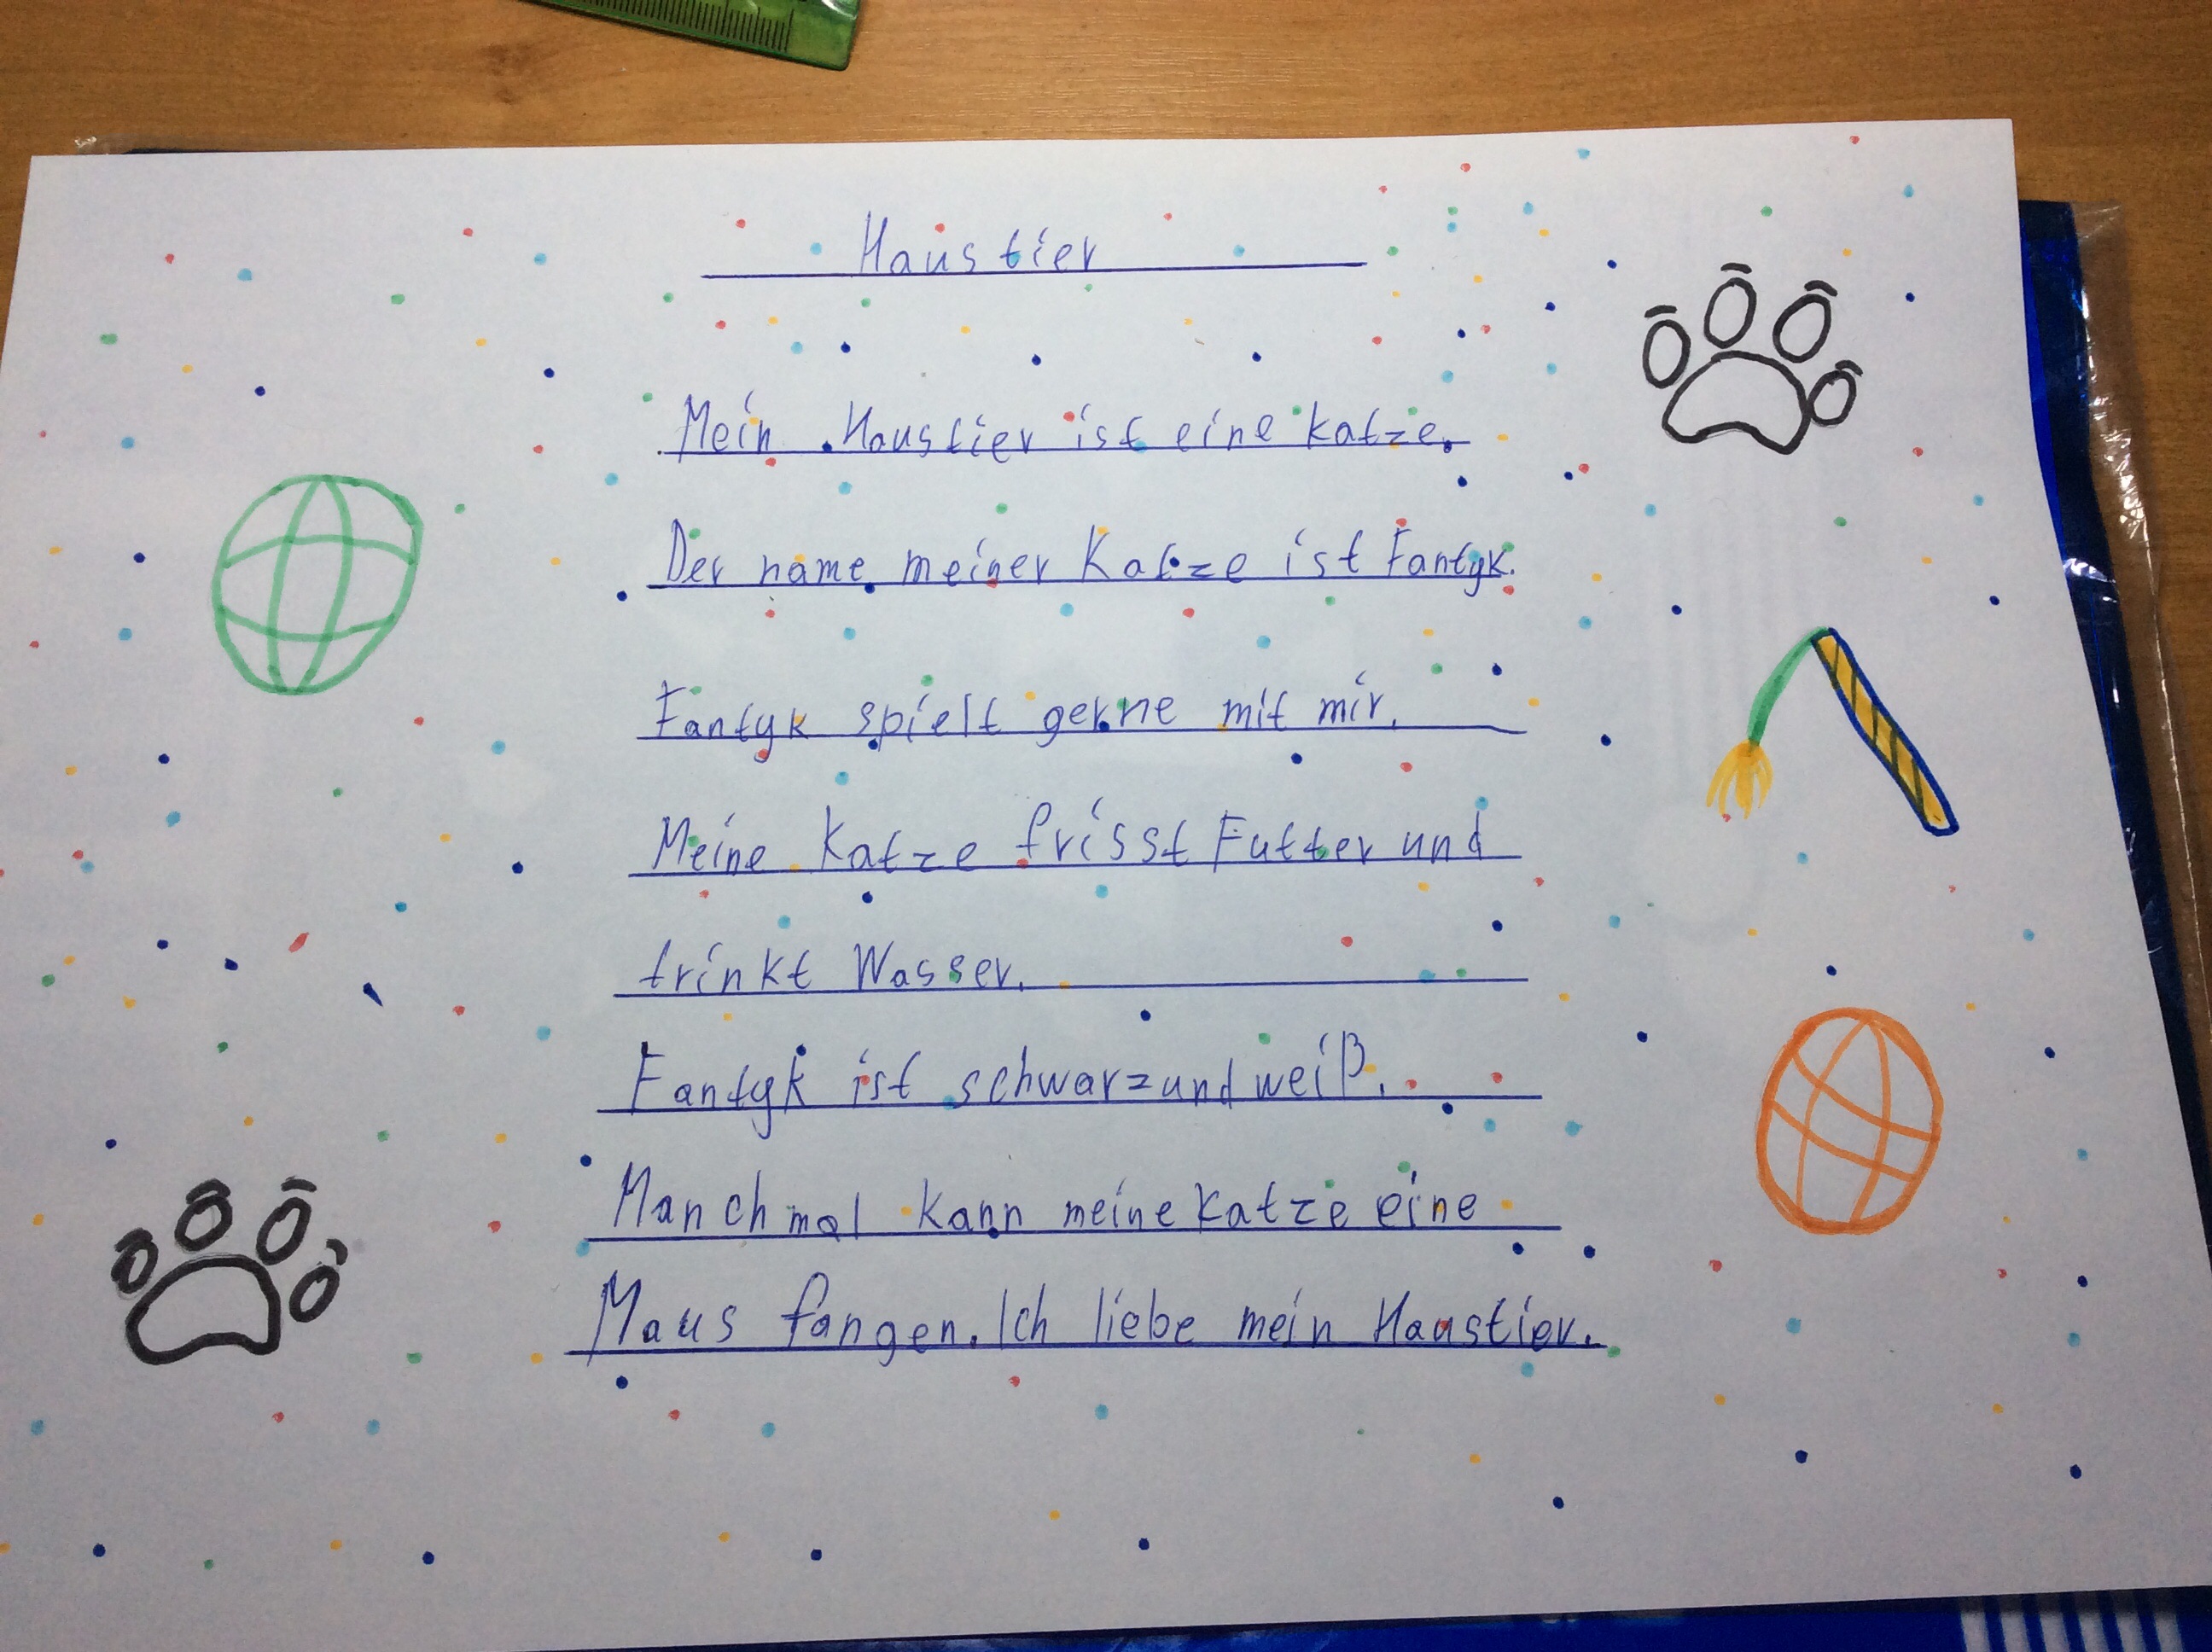 Haustier
Mein Haustier ist eine Katze.
Der name meiner Katze ist Fantyk.
Fantyk spielt gerne mit mir.
Meine Katze frisst Futter und
trinkt Wasser.
Fantyk ist schwarz und weiß.
Manchmal kann meine Katze eine
Maus fangen. Ich liebe mein Haustier.